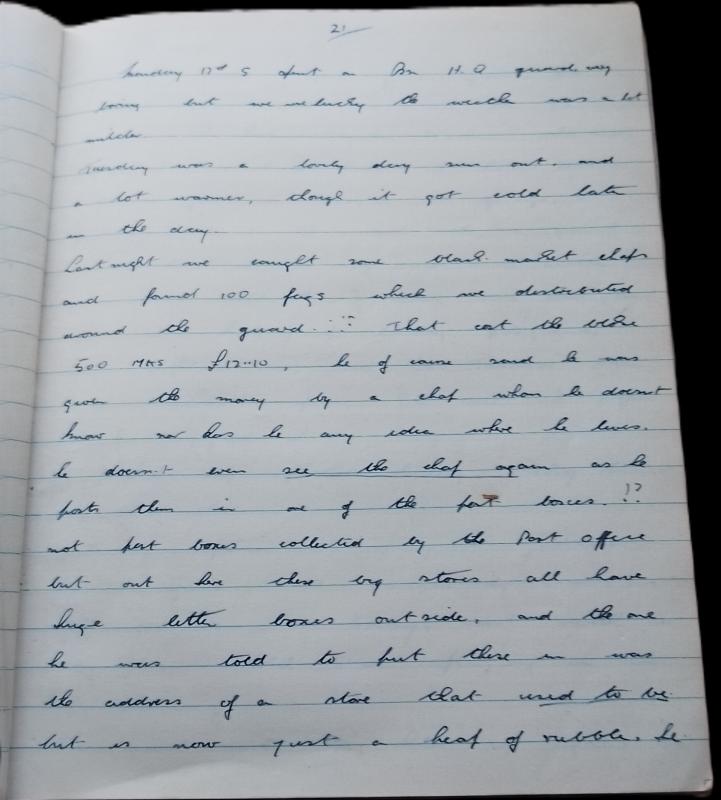 21
Monday 12th S spent on Bn H.Q guard, very
boring but we were lucky the weather was a lot
milder
Tuesday was a lovely day sun out. and
a lot warmer, though it got cold late
in the day.
Last night we caught some black market chaps
and found 100 fags which we distributed
around the guard.
That cost the bloke
500 MKS £12-10, he of course said he was
given the money by a chap whom he doesn't
know nor has he any idea where he lives.
he doesn't even see the chap again as he
posts them in one of the post boxes. !?
not post boxes collected by the Post office
but out here these big stores all have
huge letter boxes outside, and the one
he was told to put these in was
the address of a store that used to be
but is now just a heap of rubble. he